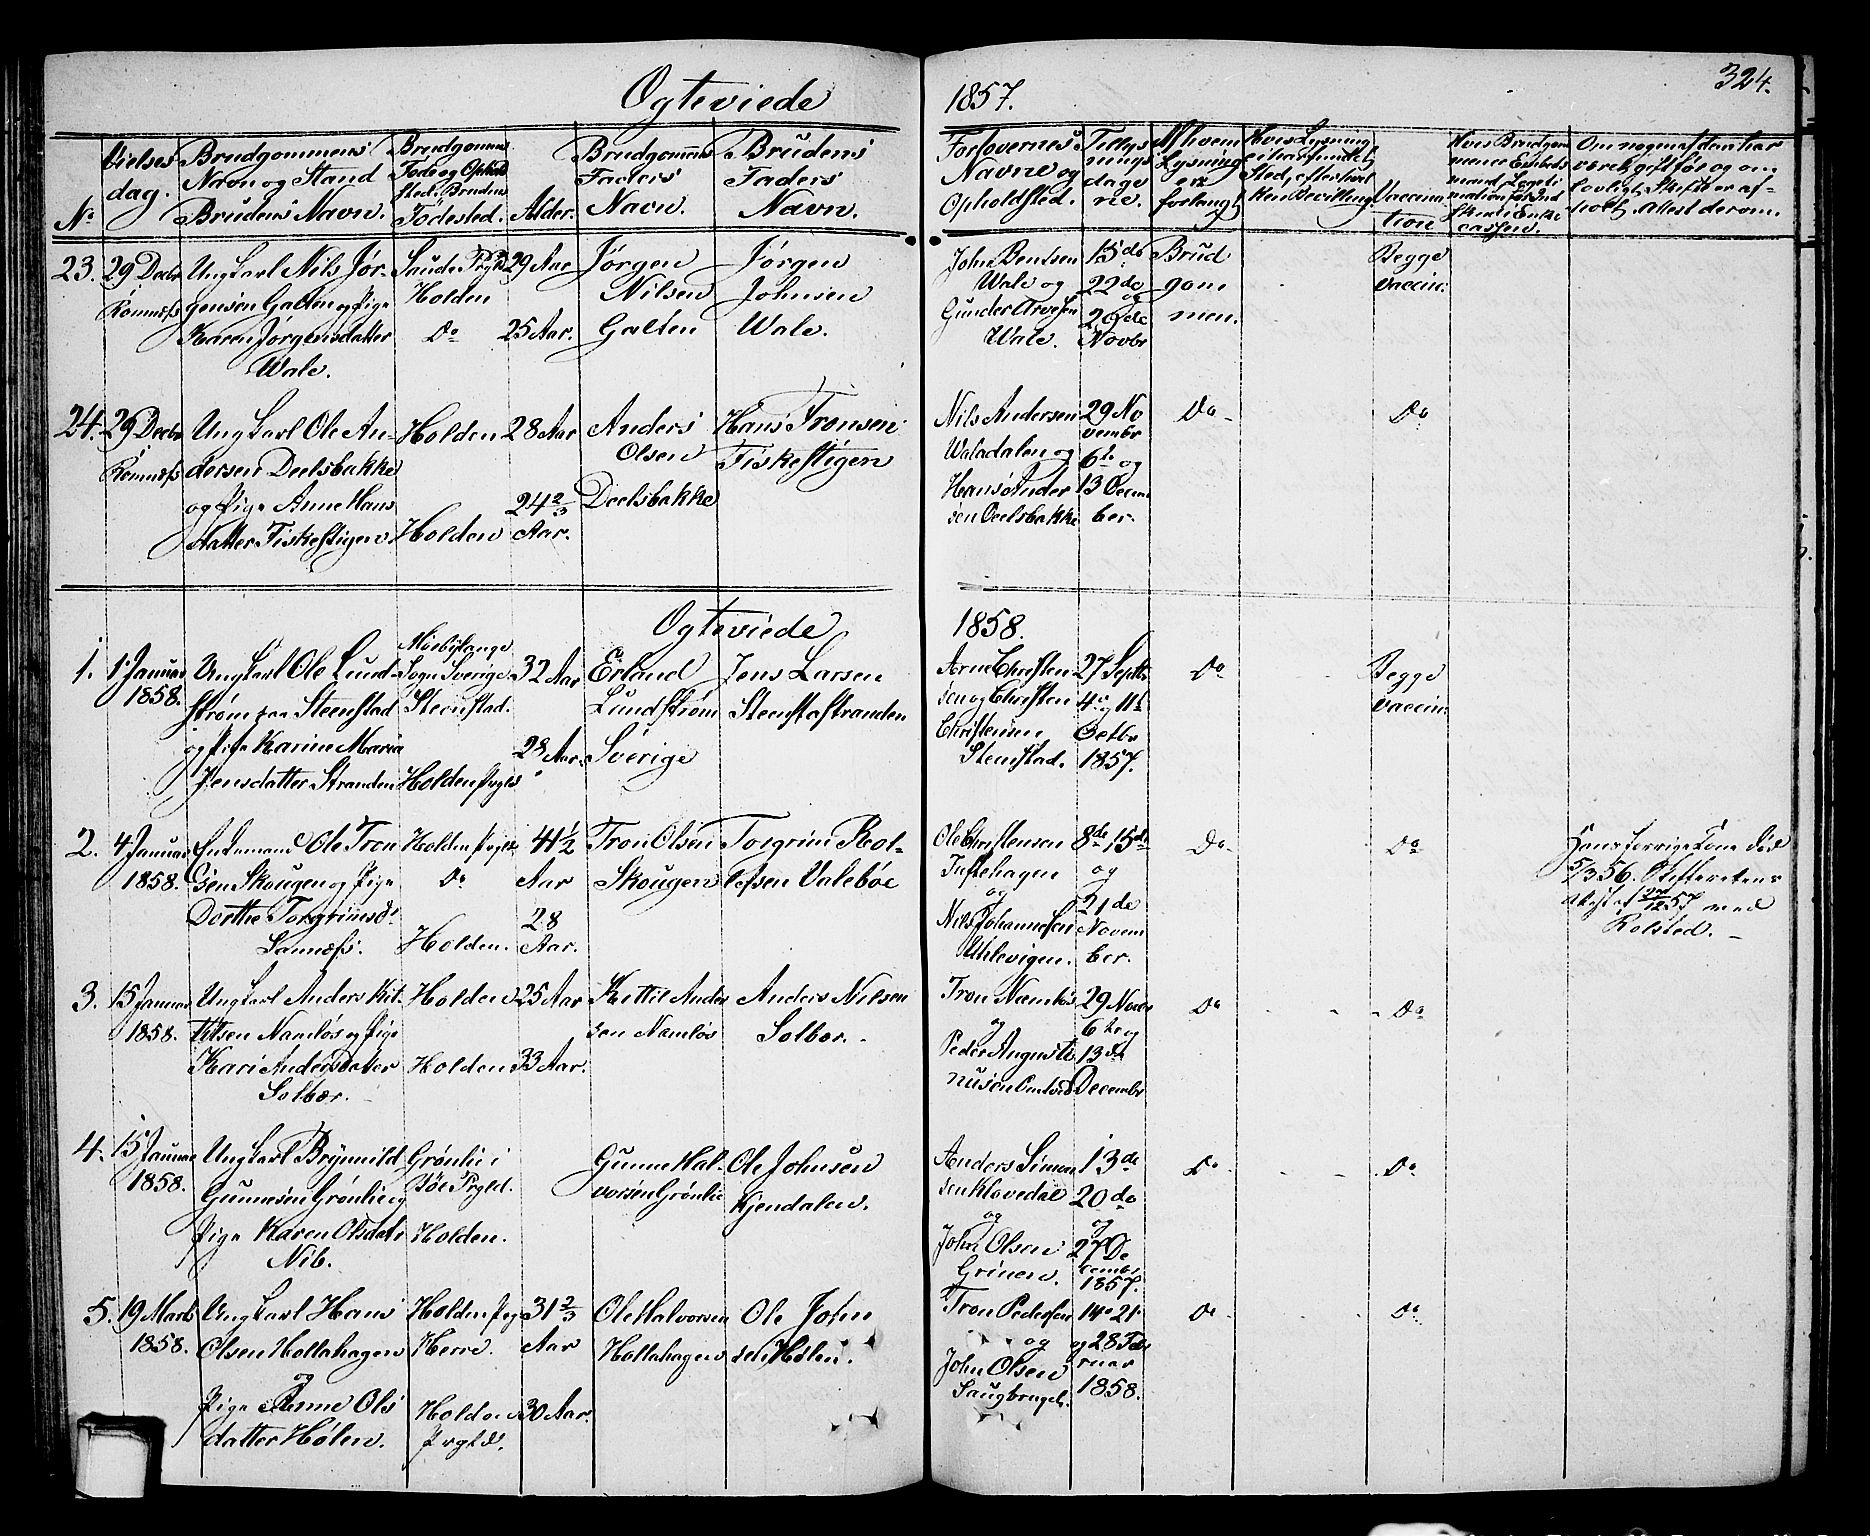 324.
Ogteviede
1857.
No
Vielses
dag.
Brudgommens
Navn og Stand
Brudens Navn.
Brudgommens
Føde og Ophold
sted. Brudens
Fødested.
Alder.
Brudgommens
Faders
Navn.
Brudens
Faders
Navn.
Forlovernes
Navne og
Opholdsted.
Tillys
nings
dage
ne.
Af hvem
Lysning
er
forlangt
Hvis Lysning
ei har fundet
Sted, efter hvil
ken Bevilling
Vaccina
tion
Om nogen af dem har
været gift før og om
lovligt Skifte er af-
holt, Attest derom.
23.
29 Decbr
Romnæss
Ungkarl Nils Jør-
gensen Galten og Pige
Karen Jørgensdatter
Wale.
Saude Prgld
Holden
Do
29 Aar
25 Aar.
Jørgen
Nilsen
Galten
Jørgen
Johnsen
Wale.
John Bentsen
Wale og
Gunder
Wale.
15de
22de
og
29de
Novbr
Brud
gom
men.
Begge
vaccin.
24.
29 Decbr
Romnæss
Ungkarl Ole An-
dersen Deelsbakke
og Pige Anne Hans
datter Fiskestigen
Holden
Holden
28 Aar
24 2/3
Aar.
Anders
Olsen
Deelsbakke
Hans Tronsen
Fiskestigen
Nils Andersen
Waladalen og
Hans Ander
sen Deelsbakke
29 No
vembr
6te og
13 Decem
ber.
Do
Do
Ogteviede
1858.
1.
1 Januar
1858.
Ungkarl Ole Lund-
strøm paa Steenstad
og Pige Karine Maria
Jensdatter Stranden
Sogn Sverige.
Steenstad.
Holden Prgld
32 Aar
28 Aar.
Erland
Lundstrøm
Sverige
Jens Larsen
Steenstastranden
Arne Christen
sen og Christen
Christensen
Stenstad.
27 Septbr
4 og 11te
Octbr
1857.
Do
Begge
vaccin
2.
4 Januar
1858.
Enkemand Ole Tron
sen Skougen og Pige
Dorthe Torgrimsd.
Sannæss.
Holden Prgld
Do
Holden.
41 1/2
Aar
28
Aar.
Tron Olsen
Skougen
Torgrim Rol-
lefsen Valebøe
Ole Christensen
Tuftehagen
og
Nils Johannesen
Uhlevigen.
8de 15de
og
21de
Novem
ber.
Do
Do
Hans forrige Kone død
5/3 56. Skifterettens
Attest af 27/12 57 med
Rolsted.
3.
15 Januar
1858.
Ungkarl Anders Kit-
tilsen Namløs og Pige
Kari Andersdatter
Solbær.
Holden
Holden
25 Aar
33 Aar.
Kittil Ander
sen Namløs
Anders Nilsen
Solbær.
Tron Namløs
og
Peder Augusti
nusen
29 Novbr
6te og
13de
Decembr
Do
Do
4.
15 Januar
1858.
Ungkarl Brynnild
Gunnesen Grønlie og
Pige Karen Olsdatr
Nib.
Grønlie i
Bøe Prgld.
Holden.
Gunne Hal-
vorsen Grønlie
Ole Johnsen
Kjendalen.
Anders Simon
sen Klovedal
og
John Olsen
Grinen.
13de
20de
og
27 De
cembr
1857.
Do
Do
5.
19 Marts
1858.
Ungkarl Hans
Olsen Hollahagen
og
Pige Anne Ols
datter Hølen.
Holden Prgld
Herre.
Holden
Prgld.
31 2/3
Aar
30 Aar.
Ole Halvorsen
Hollahagen
Ole John
sen Hølen.
Tron Pedersen
og
John Olsen
14 21
og 28 Feb
ruar
1858.
Do
Do